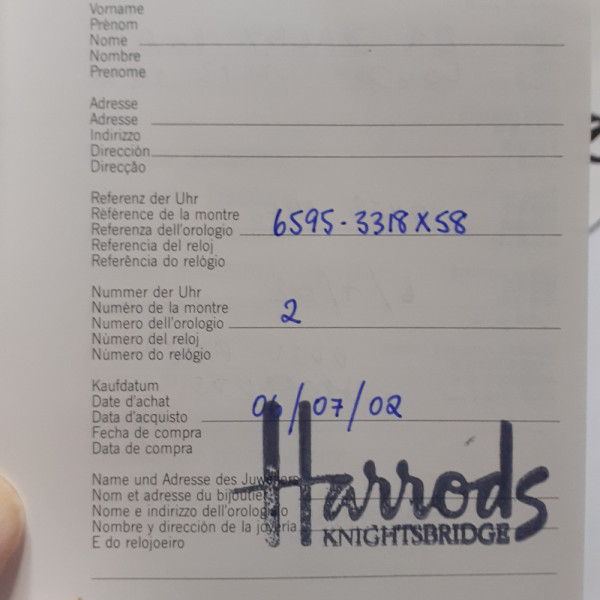 Vorname
Prènom
Nome
Nombre
Prenome
Adresse
Adresse
Indirizzo
Dirección
Direcção
Referenz der Uhr
Rèfèrence de la montre
Referenza dell'orologio 6595-3318X58
Referencia del reloj
Referência do relógio
Nummer der Uhr
Numèro de la montre
Numero dell'orologio 2
Nùmero del relój
Número do relógio
Kaufdatum
Date d'achat
Data d'acquisto 06/07/02
Fecha de compra
Data de compra
Name und Adresse des Juweliers
Nom et adresse du bijoutier
Nome e indirizzo dell'orologiaio
Nombre y dirección de la joyería
E do relojoeiro
Harrods
KNIGHTSBRIDGE